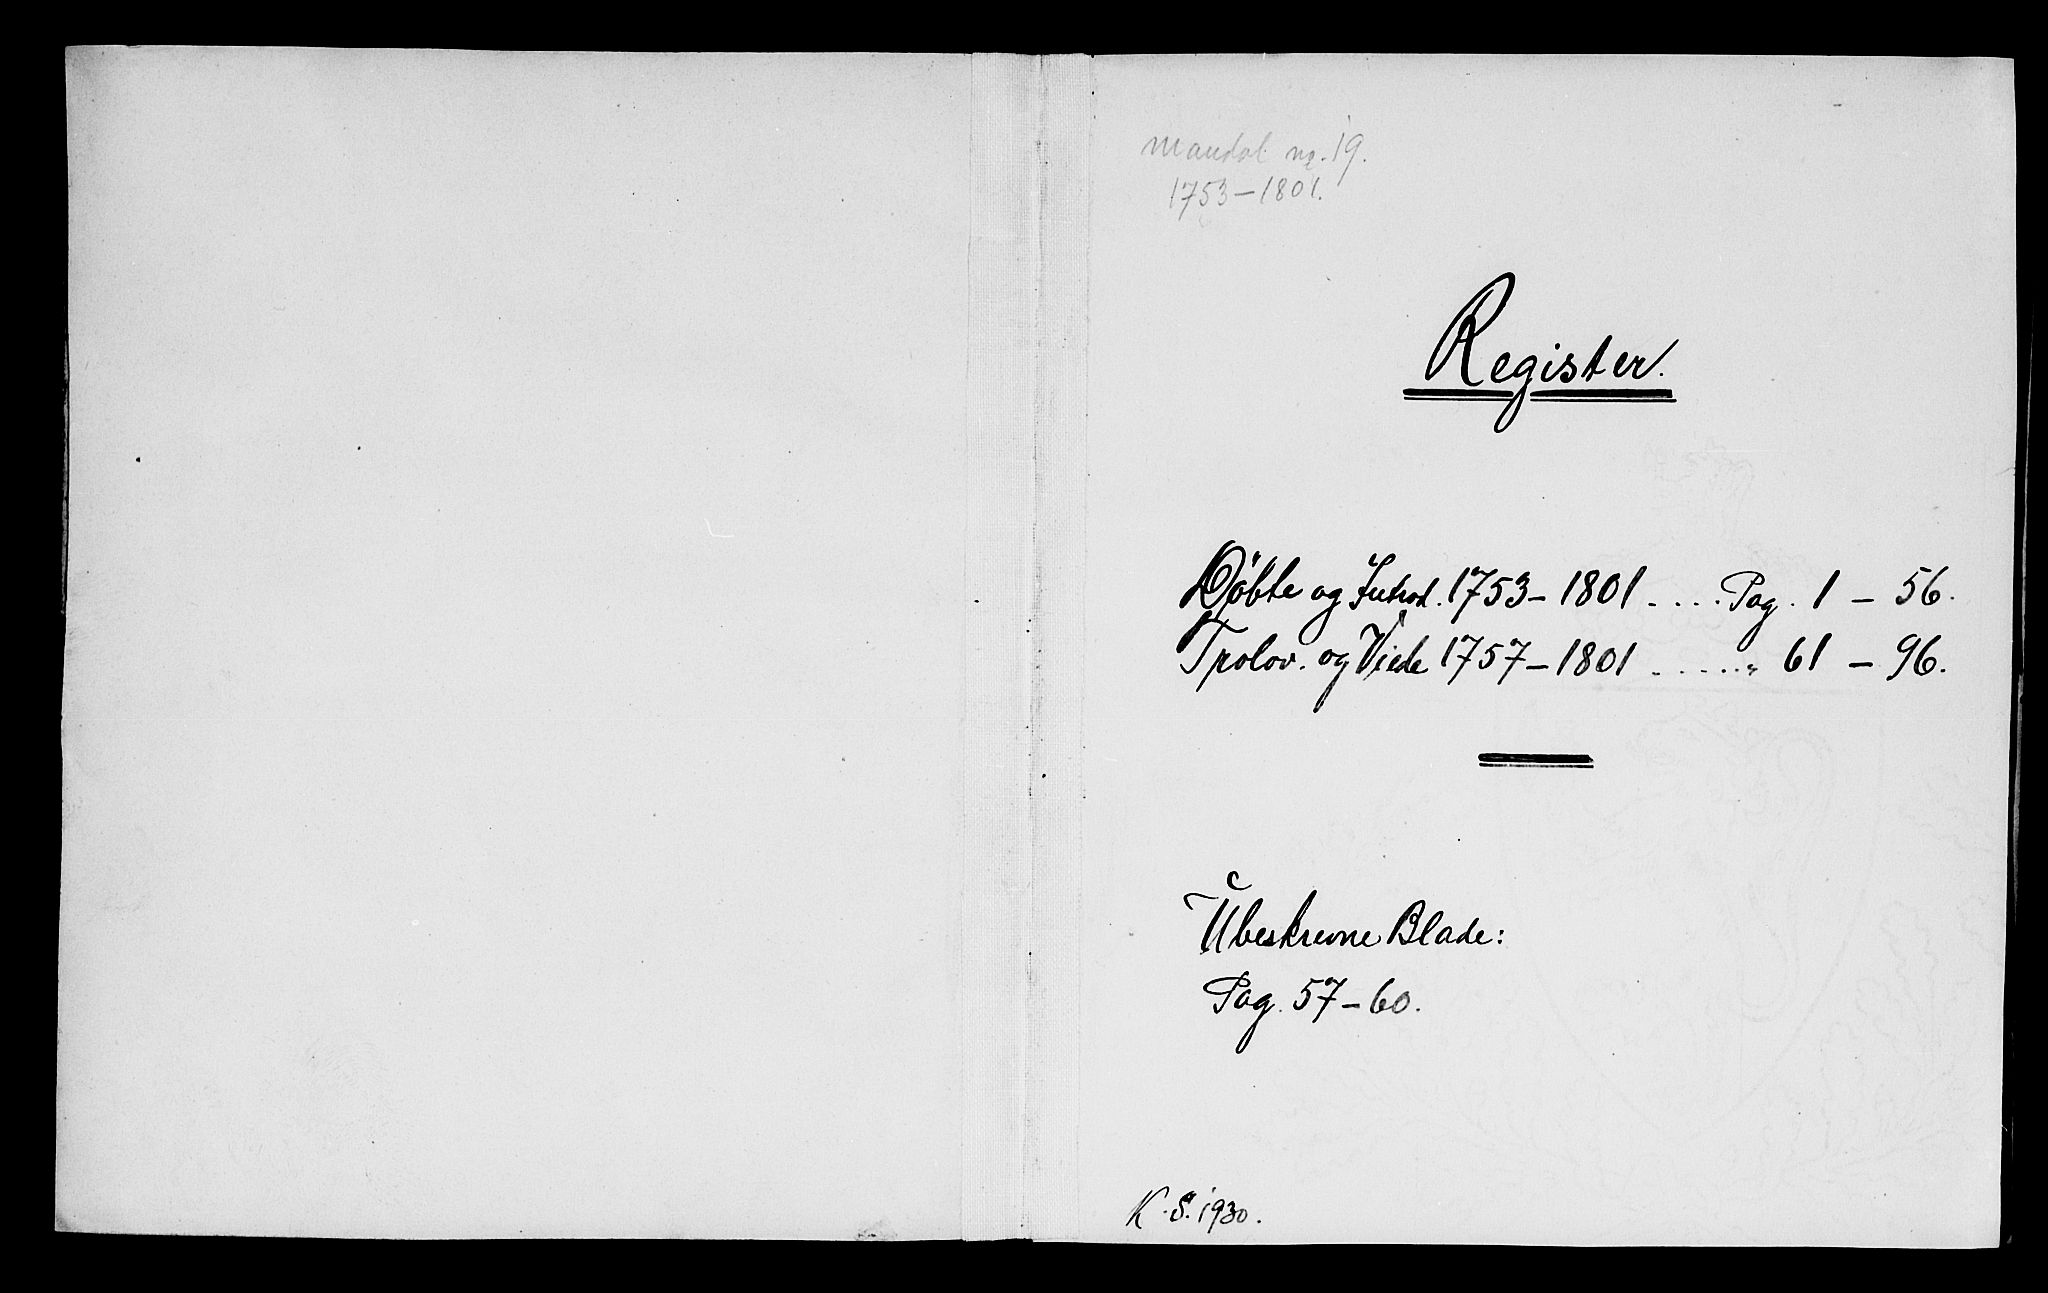 Mandal no. 19.
1753-1801.
Register.
Døbte og Introd. 1753-1801 .... Pag. 1 - 56.
Trolov. og Viede 1757-1801 ..... " 61 - 96.
Ubeskrevne Blade:
Pag. 57-60.
K.S. 1930.